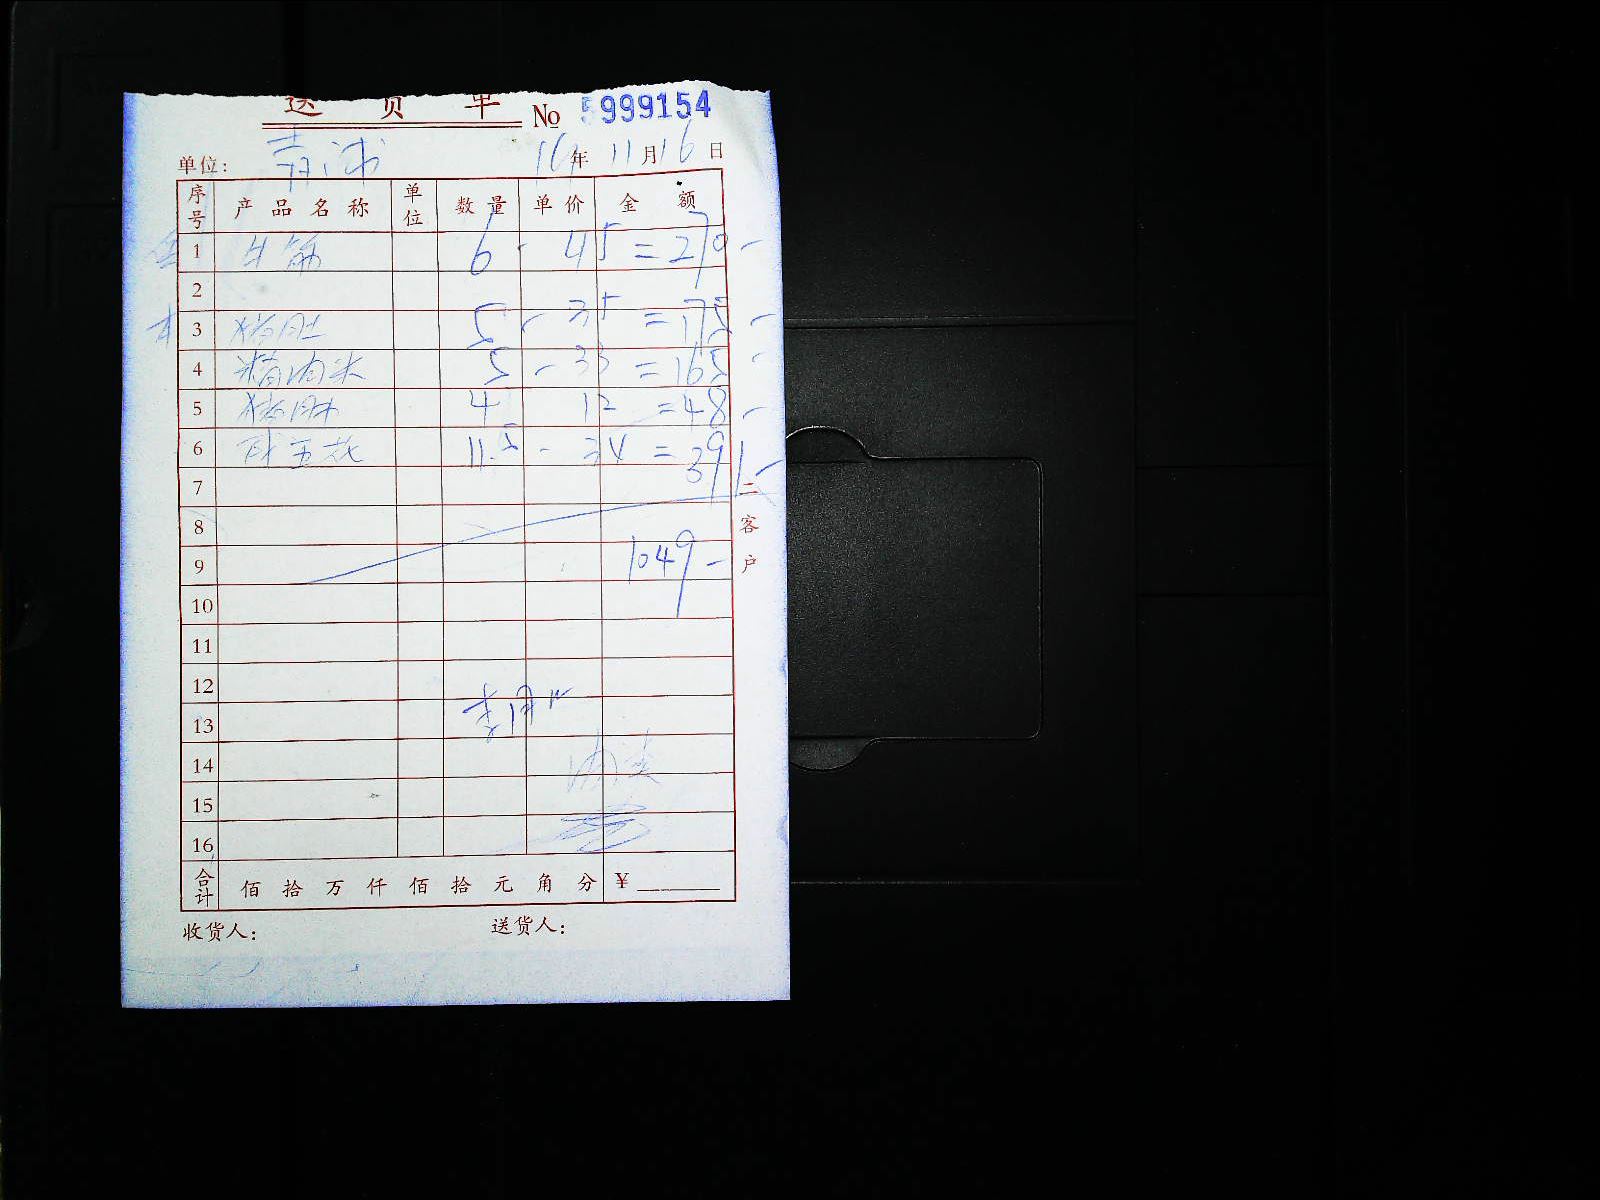 送货单 No 5999154
单位: 青浦 16年11月16日
序号 产品名称 单位 数量 单价 金额
1 牛筋 6 - 45 = 270 -
2
3 猪肚 5 - 35 = 175 -
4 精肉米 5 - 33 = 165 -
5 猪肝 4 12 = 48 -
6 五花 11.5 - 34 = 391 -
7
8
9 1049 -
10
11
12
13
14
15
16
合计 佰 拾 万 仟 佰 拾 元 角 分 ¥
收货人: 送货人:
二客户